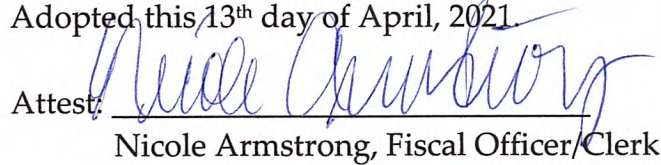 Adopted this 13th day of April, 2021.
Nicole Armstrong
Attest:
Nicole Armstrong, Fiscal Officer/Clerk